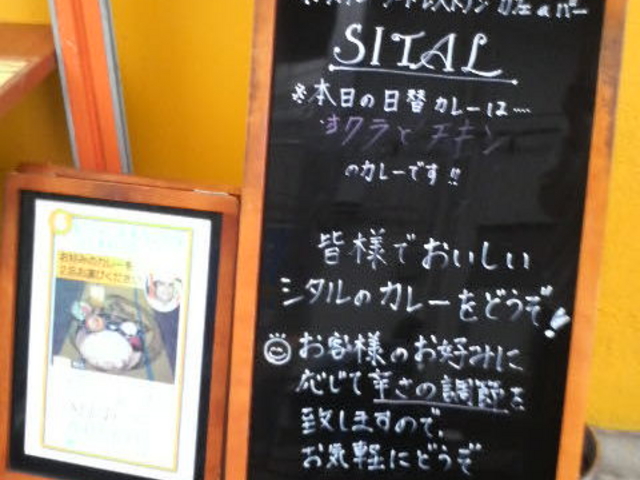 カフェ&バー
SITAL
※本日の日替カレーは……
オクラとチキン
のカレーです!!
皆様でおいしい
シタルのカレーをどうぞ!
お客様のお好みに
応じて辛さの調節を
致しますので、
お気軽にどうぞ
お好みのカレーを
2品お選びください